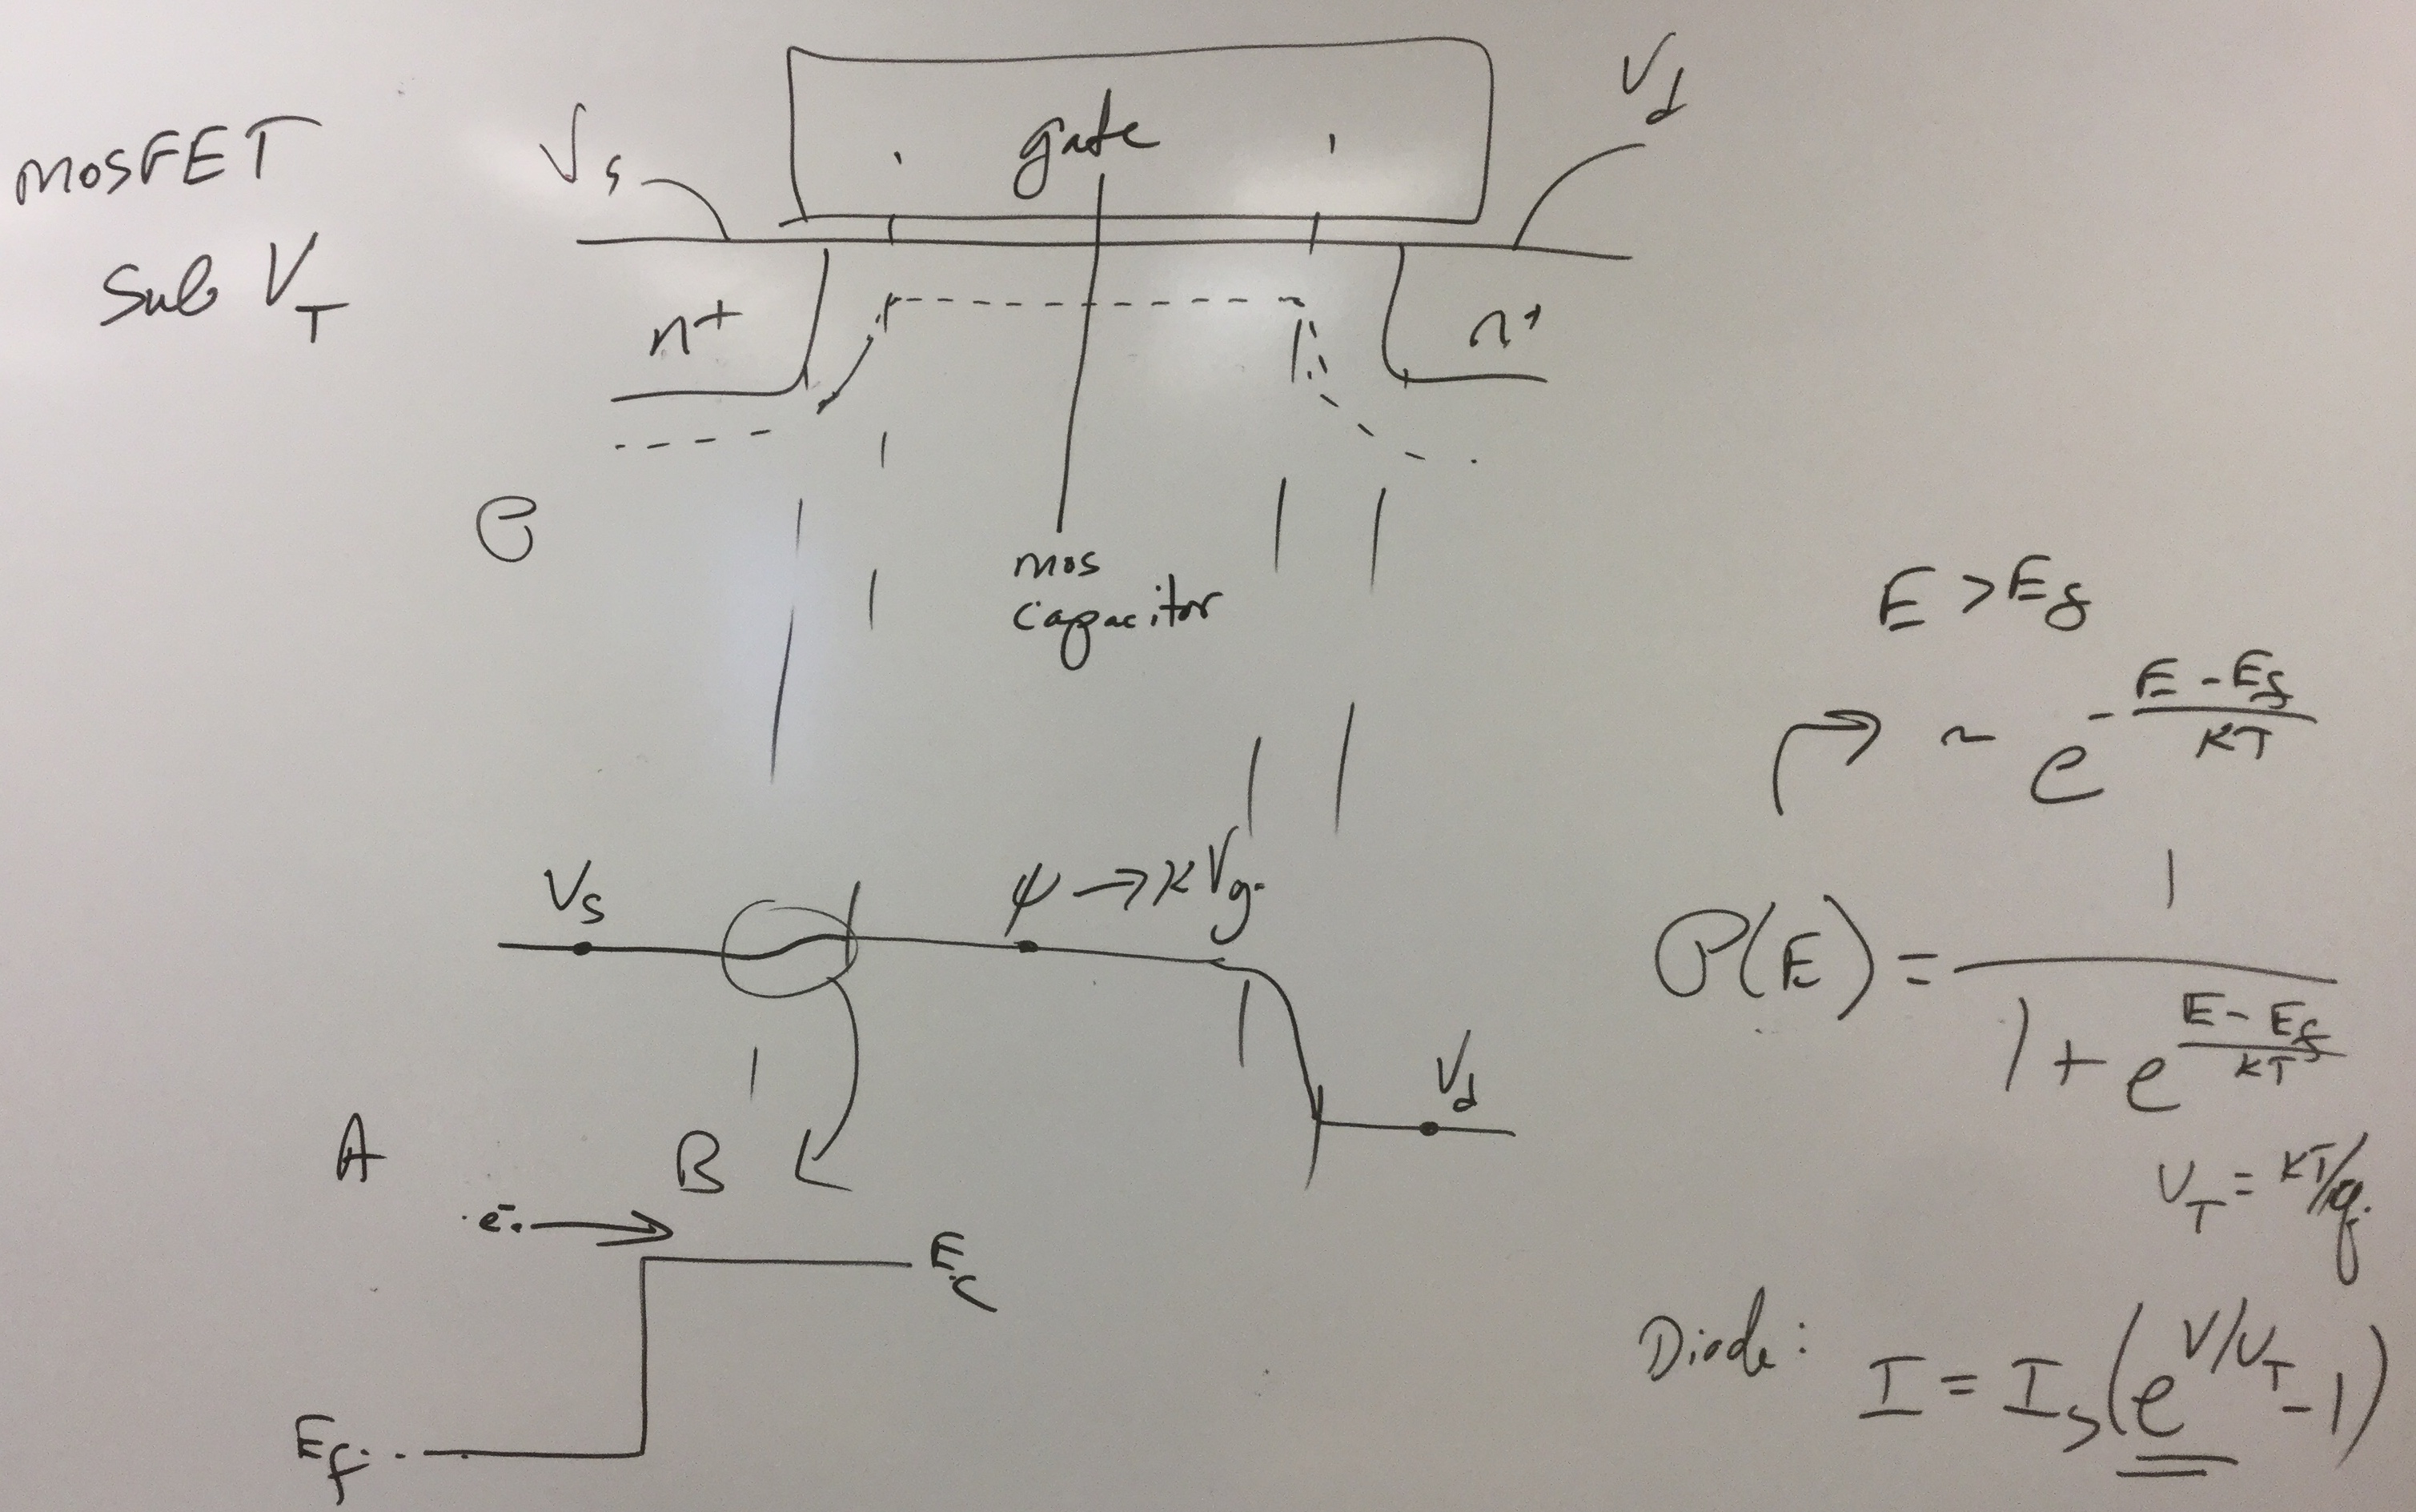 MOSFET
Sub V_T
V_s
gate
V_d
n+
n+
mos
capacitor
V_s
ψ → κV_g
V_d
A
B
e-
E_c
E_f
E > E_f
~ e^{-\frac{E - E_f}{kT}}
P(E) = \frac{1}{1 + e^{\frac{E - E_f}{kT}}}
U_T = kT/q
Diode: I = I_s(e^{V/U_T} - 1)